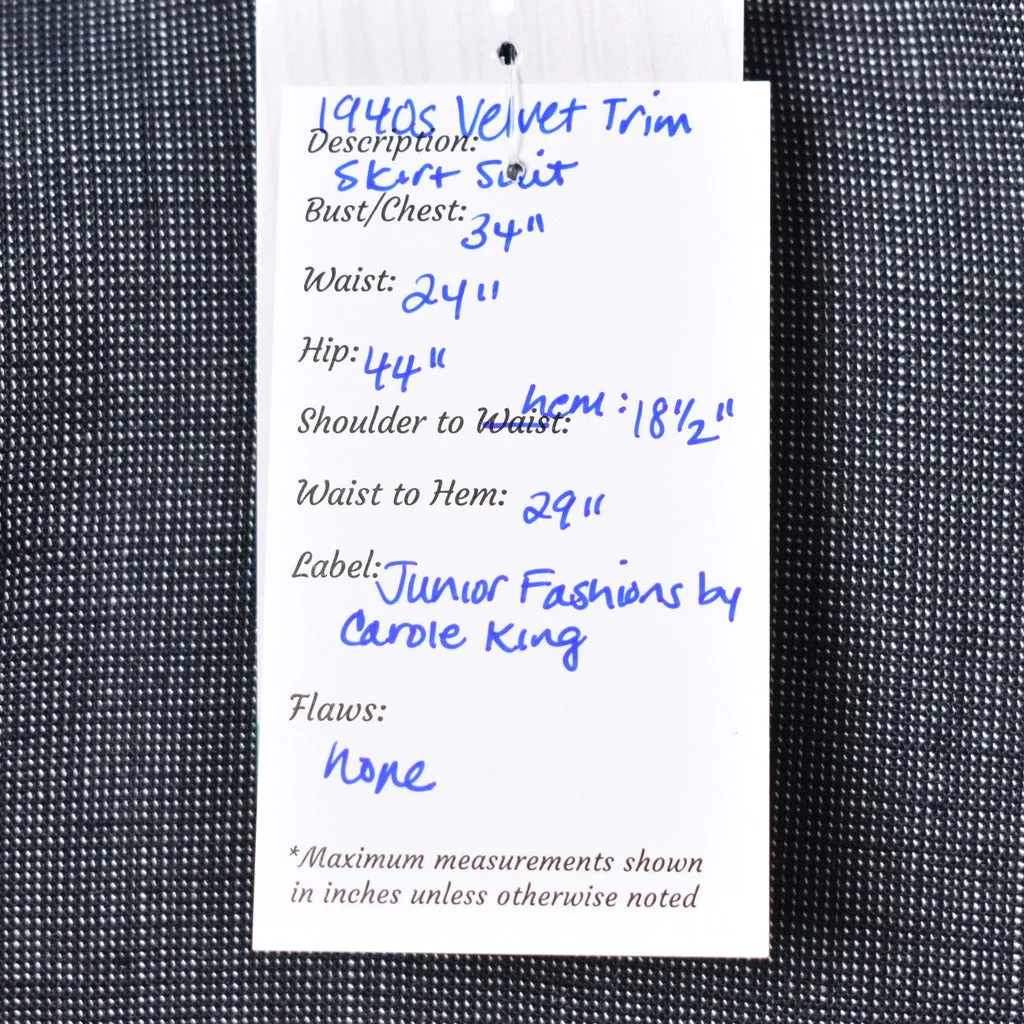 1940s Velvet Trim
Description:
Skirt Suit
Bust/Chest: 34"
Waist: 24"
Hip: 44"
hem: 18 1/2"
Shoulder to Waist:
Waist to Hem: 29"
Label: Junior Fashions by
Carole King
Flaws:
none
*Maximum measurements shown
in inches unless otherwise noted